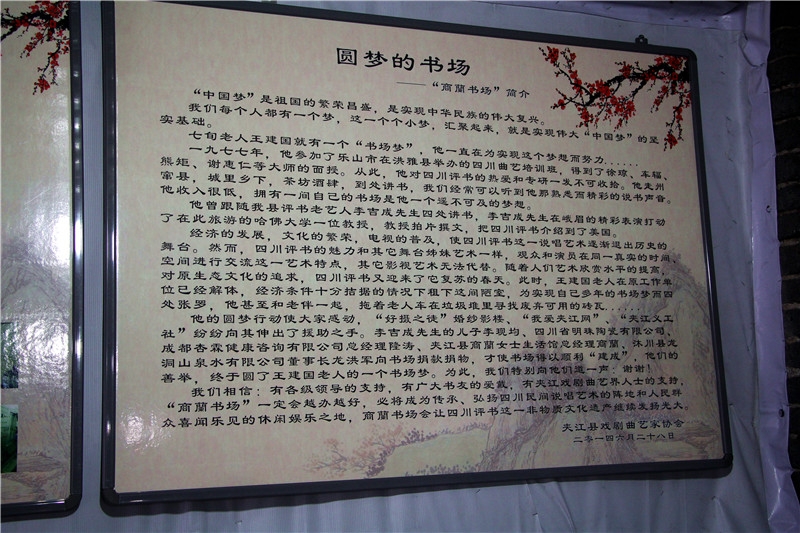 圆梦的书场
——“商蘭书场”简介
“中国梦”是祖国的繁荣昌盛，是实现中华民族的伟大复兴。
我们每个人都有一个梦，这一个个小梦，汇聚起来，就是实现伟大“中国梦”的坚
实基础。
七旬老人王建国就有一个“书场梦”，他一直在为实现这个梦想而努力......
一九七七年，他参加了乐山市在洪雅县举办的四川曲艺培训班，得到了徐琼、车辐、
熊炬、谢惠仁等大师的面授。从此，他对四川评书的热爱和专研一发不可收拾。他走州
窜县，城里乡下，茶坊酒肆，到处讲书，我们经常可以听到他那熟悉而精彩的说书声音。
他收入很低，拥有一间自己的书场是他一个遥不可及的梦想。
他曾跟随我县评书老艺人李吉成先生四处讲书，李吉成先生在峨眉的精彩表演打动
了在此旅游的哈佛大学一位教授，教授拍片撰文，把四川评书介绍到了美国。
经济的发展，文化的繁荣，电视的普及，使四川评书这一说唱艺术逐渐退出历史的
舞台。然而，四川评书的魅力和其它舞台姊妹艺术一样，观众和演员在同一真实的时间
空间进行交流这一艺术特点，其它影视艺术无法代替。随着人们艺术欣赏水平的提高，
对原生态文化的追求，四川评书又迎来了它复苏的春天。此时，王建国老人在原工作单
位已经解体，经济条件十分拮据的情况下租下这间陋室，为实现自己多年的书场梦而四
处张罗，他甚至和老伴一起，拖着老人车在垃圾堆里寻找废弃可用的砖瓦......
他的圆梦行动使大家感动，“好摄之徒”婚纱影楼、“我爱夹江网”、“夹江义工
社”纷纷向其伸出了援助之手。李吉成先生的儿子李现均、四川省明珠陶瓷有限公司、
成都杏霖健康咨询有限公司总经理隆涛、夹江县商蘭女士生活馆总经理商蘭，沐川县龙
洞山泉水有限公司董事长龙洪军向书场捐款捐物，才使书场得以顺利“建成”，他们的
善举，终于圆了王建国老人的一个书场梦。为此，我们特别向他们道一声：谢谢！
我们相信：有各级领导的支持，有广大书友的爱戴，有夹江戏剧曲艺界人士的支持，
“商蘭书场”一定会越办越好，必将成为传承、弘扬四川民间说唱艺术的阵地和人民群
众喜闻乐见的休闲娱乐之地，商蘭书场会让四川评书这一非物质文化遗产继续发扬光大。
夹江县戏剧曲艺家协会
二零一四六月二十八日